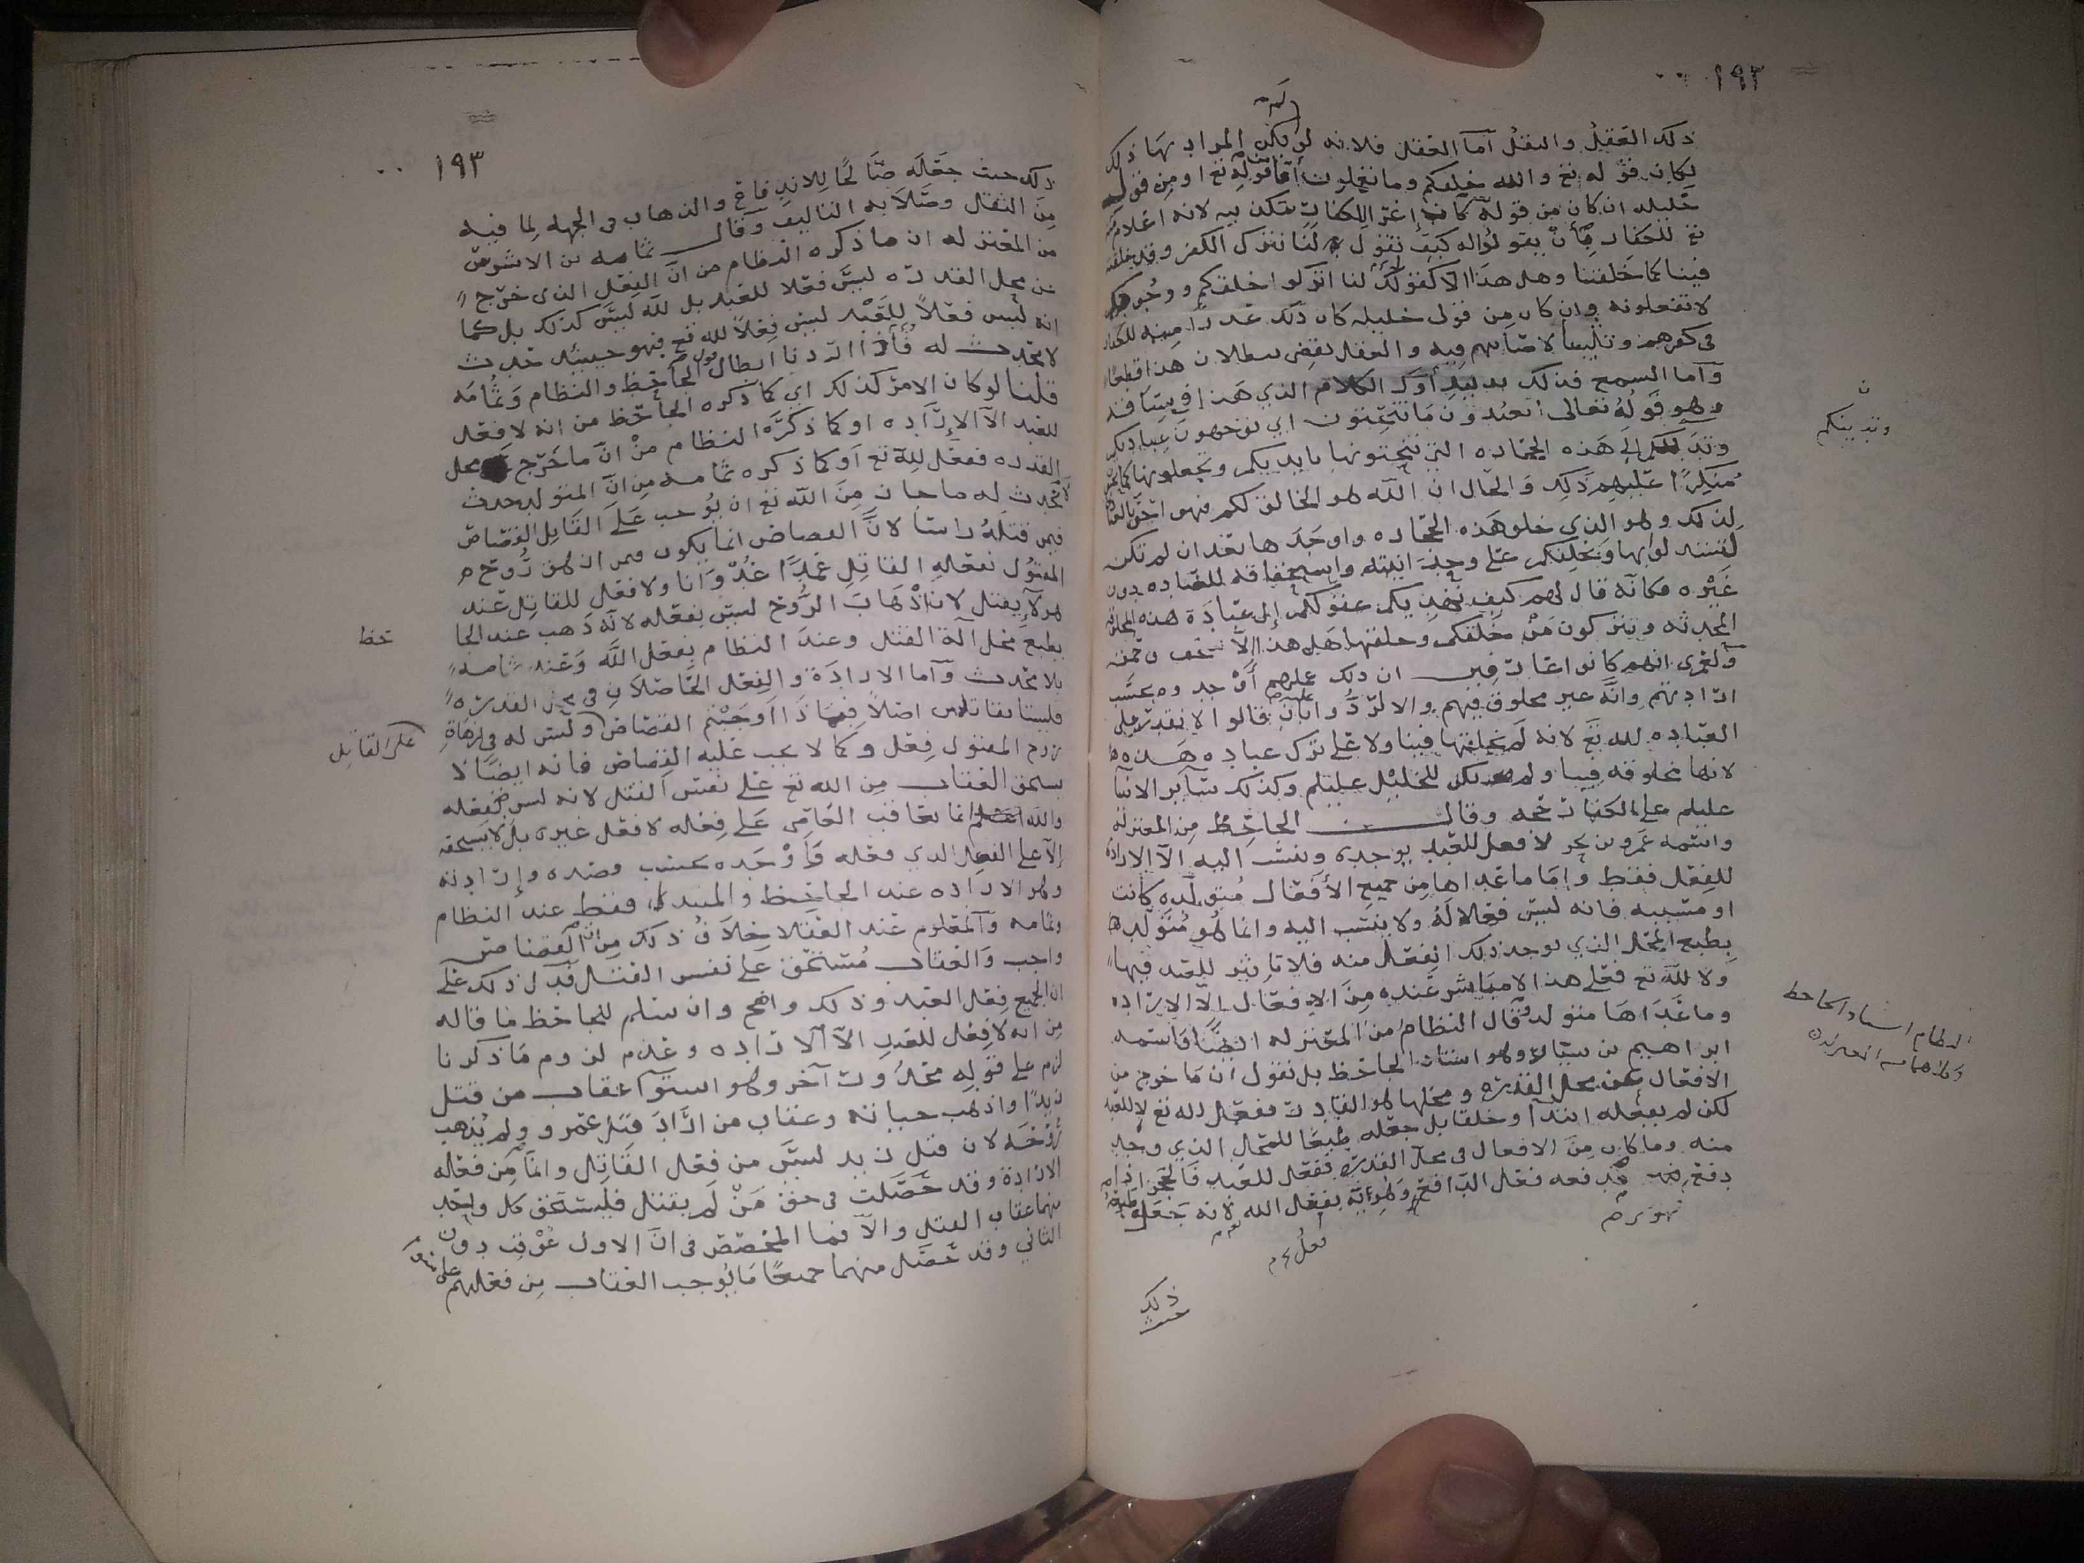 ١٩٣
ذلك العقل والنقل أما العقل فلانه لو لم يكن المراد بها ذلك
لكان قوله تع والله خلقكم وما تعملون اما قوله تع او من قول
خليله ان كان من قوله كان اغرا للكفار
تع للكفار بأن يقولوا له كيف تقول لنا نترك الكفر وقد خلقته
فينا كما خلقتنا وهل هذا الا كقولك لنا اتركوا خلقكم ووجوهكم
لا تفعلونه وان كان من قول خليله كان ذلك
في كفرهم فيه والعقل يقضي ببطلان هذا قطعا
وأما السمع فذلك بدليل أول الكلام الذي هذا في سياقه
وهو قوله تعالى اتعبدون ما تنحتون اي توجهون عبادتكم
الى هذه الحجاره التي تنحتونها بايديكم وتجعلونها
منكرا عليهم ذلك والحال ان الله هو الخالق لكم فهو احق بالعباده
لذلك وهو الذي خلق هذه الحجاره واوجدها بعد ان لم تكن
على وحدانيته واستحقاقه للعباده دون
غيره فكأنه قال لهم كيف تهديكم عقولكم إلى عبادة هذه
المحدثه وتتركون من خلقكم وخلقها هل هذا إلا
ولعمري انهم كانوا ان ذلك عليهم أوجدوه بحسب
ارادتهم وانه غير مخلوق فيهم والا لردوا قالوا لا نقدر على
العباده لله تع لانه لم يخلقها فينا ولا على ترك عباده هذه
لانها مخلوقه فينا ولم يكن للخليل عليلم وكذلك سائر الانبيا
عليلم على الكفار حجه وقال الجاحظ من المعتزله
واسمه عمرو بن بحر لا فعل للعبد يوجده وينسب اليه الا الارادة
للفعل فقط واما ما عداها من جميع الأفعال متولده كانت
او مسببه فانه ليس فعلا له ولا ينسب اليه وانما هو متولد
بطبع المحل الذي يوجد ذلك الفعل منه فلا تاثير للعبد فيها
ولا لله تع فعلى هذا لا مباشر عنده من الافعال الا الاراده
وما عداها متولد وقال النظام من المعتزله ايضا واسمه
ابراهيم بن سيار وهو استاذ الجاحظ بل نقول ان ما خرج من
الافعال عن محل القدره ومحلها هو القادر ففعل لله تع لا للعبد
لكن لم يفعله ابتدا وخلقا بل جعله طبعا للمحل الذي وجد
منه وما كان من الافعال في محل القدره ففعل للعبد فالحجر اذا
دفع فدفعه فعل الدافع وهويه بفعل الله لانه جعل
وتدينكم
النظام استاذ الجاحظ
ذلك
حيث
١٩٣
ذلك حيث جعله صالحا للاندفاع والذهاب في الجهه لما فيه
من الثقل وصلابه التاليف وقال ثمامه بن الاشرس
من المعتزله ان ما ذكره النظام من ان الفعل الذي خرج
عن محل القدره ليس فعلا للعبد بل لله ليس كذلك بل كما
انه ليس فعلا للعبد ليس فعلا لله تع فهو حينئذ حدث
لا محدث له فاذا اردنا ابطال قول الجاحظ والنظام وثمامه
قلنا لو كان الامر كذلك اي كما ذكره الجاحظ من انه لا فعل
للعبد الا الاراده او كما ذكره النظام من ان ما خرج عن محل
القدره ففعل لله تع او كما ذكره ثمامه من ان المتولد حدث
لا محدث له ما جاز من الله تع ان يوجب على القاتل القصاص
فيمن قتله راسا لان القصاص انما يكون فيمن ازهق روحه
المقتول بفعله القاتل عمدا عدوانا ولا فعل للقاتل عند
هولآء يقتل لان إذهاب الروح ليس بفعله لانه ذهب عند الجا
بطبع محل آلة القتل وعند النظام بفعل الله وعند ثمامه
بلا محدث وأما الارادة والفعل الحاصلان في محل القدره
فليستا بقاتلين اصلا فبماذا اوجبتم القصاص وليس له في ازهاق
روح المقتول فعل وكما لا يجب عليه القصاص فانه ايضا لا
يستحق العقاب من الله تع على نفس القتل لانه ليس بفعله
والله انما يعاقب العاصي على فعله لا فعل غيره بل لا يستحقه
إلا على الفعل الذي فعله وأوجده بحسب قصده وإرادته
وهو الاراده عند الجاحظ والمبتدا فقط عند النظام
وثمامه والمعلوم عند العقلا خلاف ذلك من ان القصاص
واجب والعقاب مستحق على نفس القتل فدل ذلك على
ان الجميع فعل العبد وذلك واضح وان سلم للجاحظ ما قاله
من انه لا فعل للعبد الا الاراده وعدم لزوم ما ذكرنا
لزم على قوله محذور آخر وهو استوا عقاب من قتل
زيدا واذهب حياته وعقاب من اراد قتل عمرو ولم يذهب
روحه لان قتل زيد ليس من فعل القاتل وانما من فعله
الارادة وقد حصلت في حق من لم يقتل فليستحق كل واحد
منهما عقاب القتل والا فما المخصص في ان الاول عوقب دون
الثاني وقد حصل منهما جميعا ما يوجب العقاب من فعلهم
حظ
على القاتل